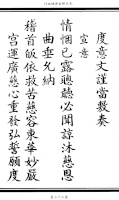 度意文謹當敷奏
宣意
情悃已露聰聽必聞諒沐慈恩
曲垂允納
稽首皈依救苦慈容東華妙嚴
宮運廣慈心重發弘誓願度